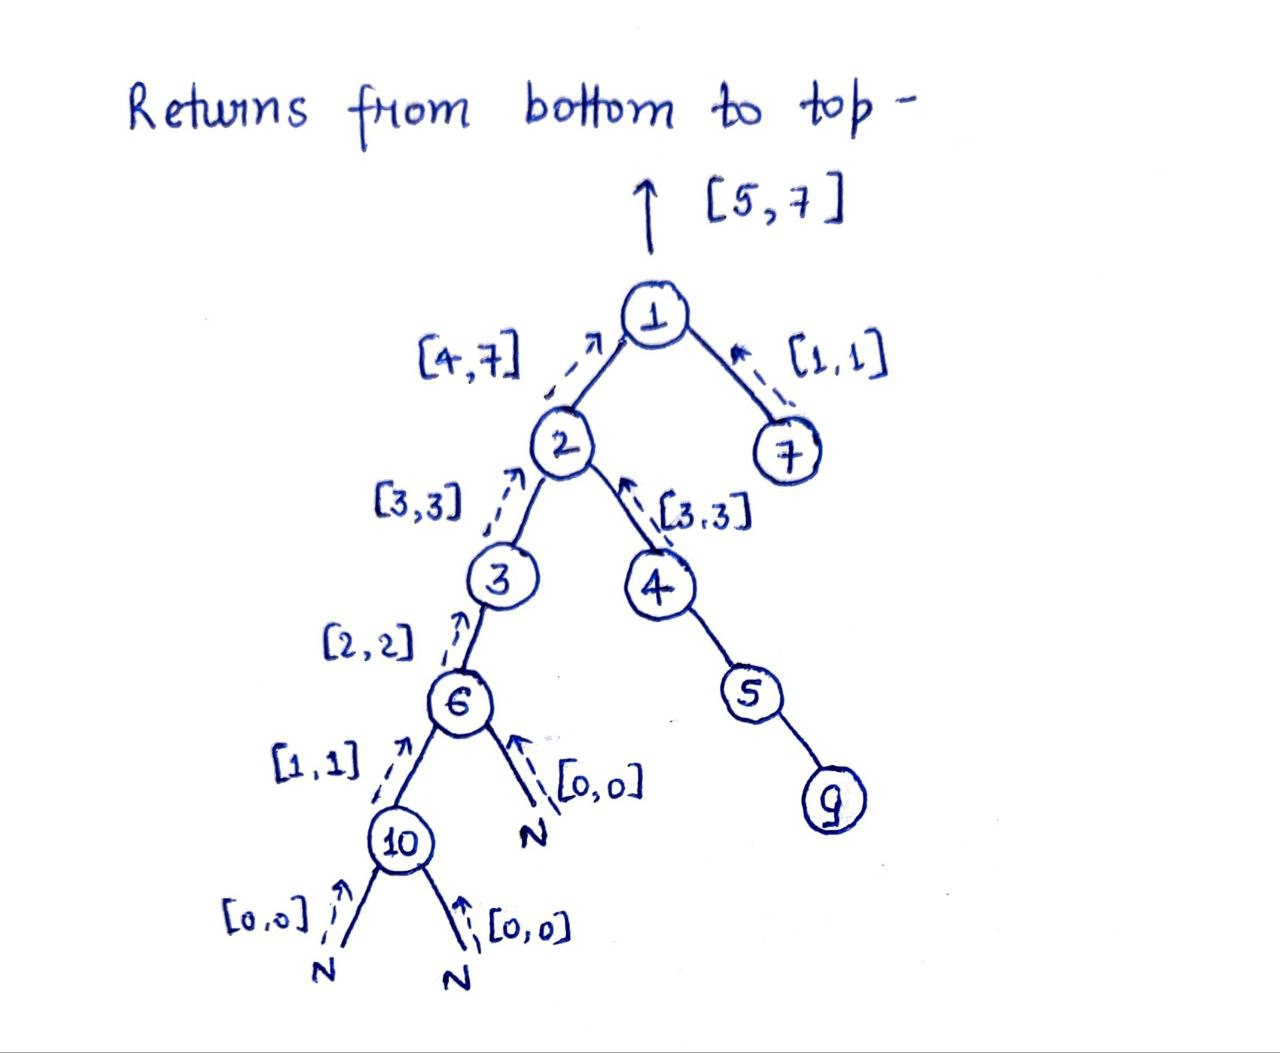 Returns from bottom to top -
[5,7]
1
[4,7]
[1,1]
2
7
[3,3]
[3.3]
3
4
[2,2]
6
5
[1,1]
[0,0]
9
10
N
[0,0]
[0,0]
N
N